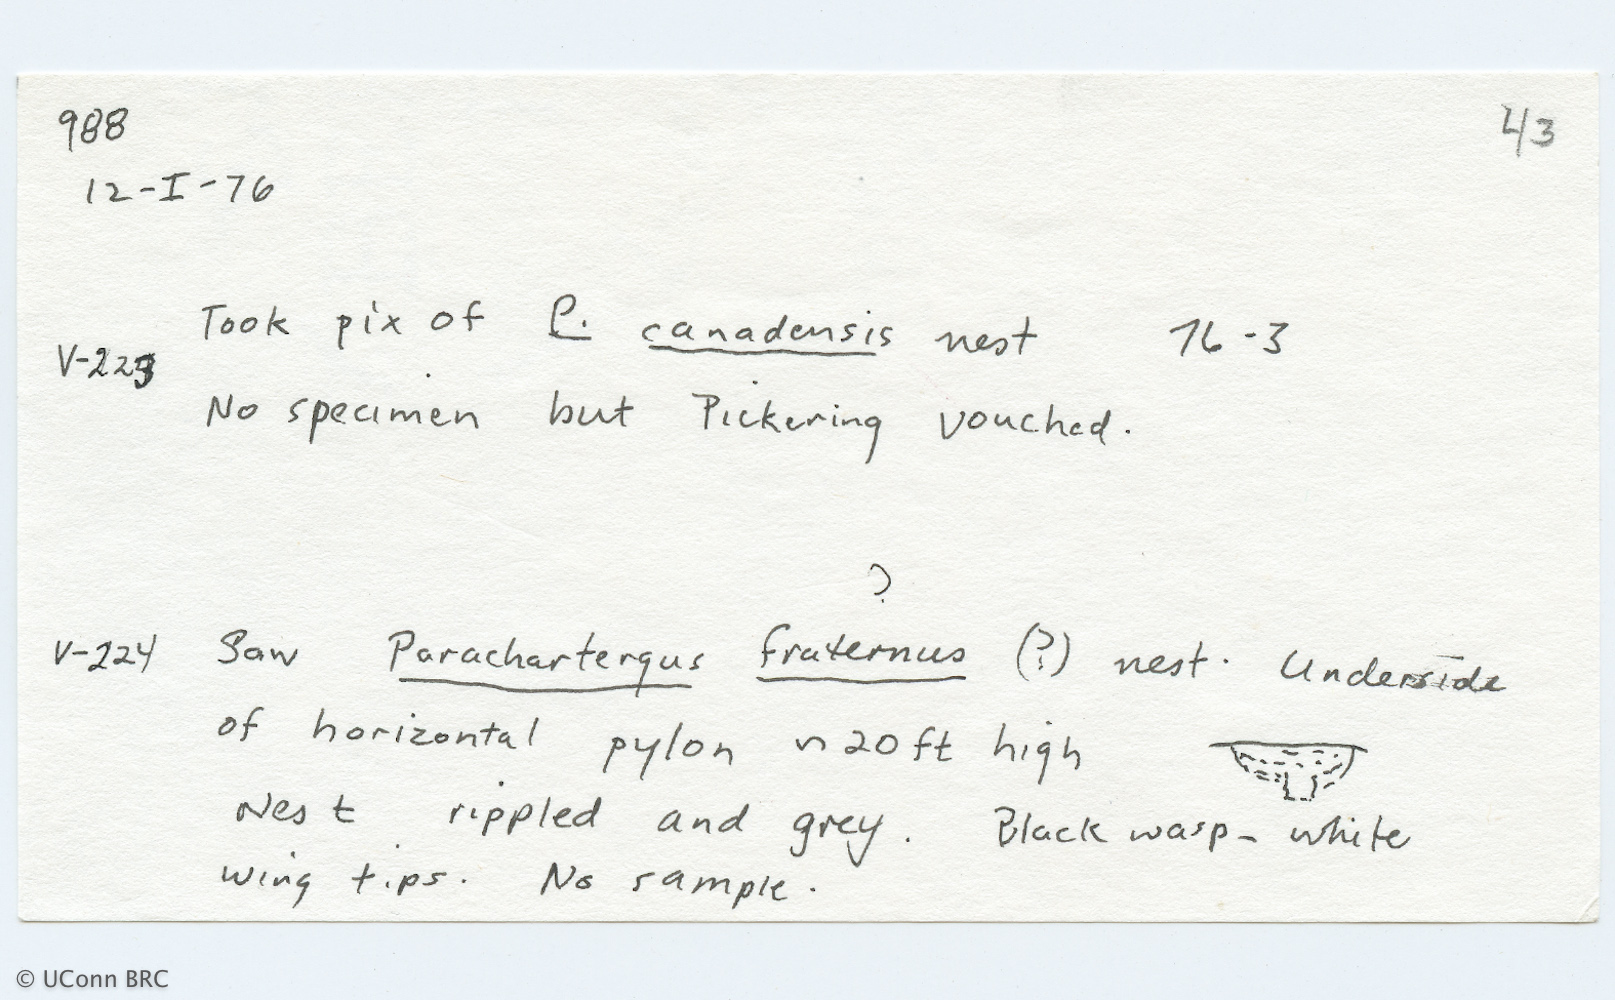 988
43
12-I-76
Took pix of P. canadensis nest 76-3
V-223
No specimen but Pickering vouched.
?
V-224 Saw Parachartergus fraternus (?) nest. Underside
of horizontal pylon ~20ft high
Nest rippled and grey. Black wasp - white
wing tips. No sample.
© UConn BRC